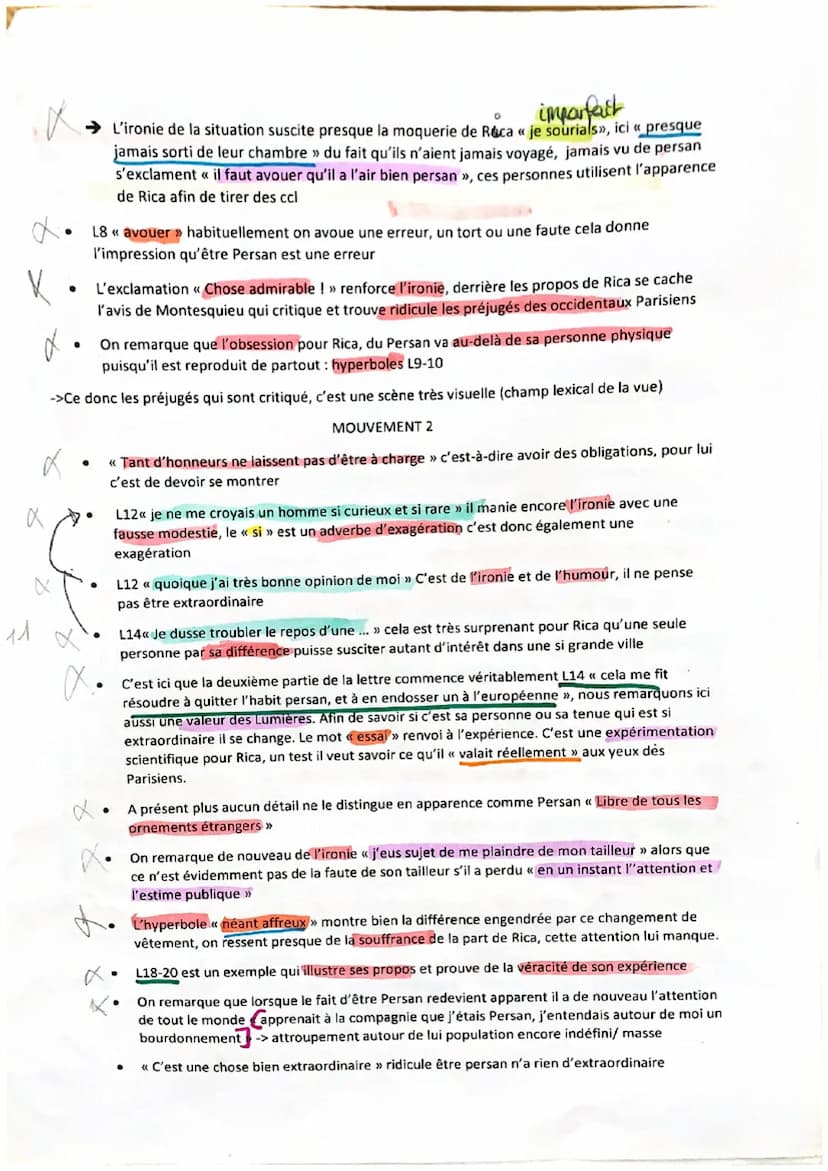 imparfait
→ L'ironie de la situation suscite presque la moquerie de Rica « je souriais», ici « presque
jamais sorti de leur chambre » du fait qu'ils n'aient jamais voyagé, jamais vu de persan
s'exclament « il faut avouer qu'il a l'air bien persan », ces personnes utilisent l'apparence
de Rica afin de tirer des ccl
• L8 « avouer » habituellement on avoue une erreur, un tort ou une faute cela donne
l'impression qu'être Persan est une erreur
• L'exclamation « Chose admirable ! » renforce l'ironie, derrière les propos de Rica se cache
l'avis de Montesquieu qui critique et trouve ridicule les préjugés des occidentaux Parisiens
• On remarque que l'obsession pour Rica, du Persan va au-delà de sa personne physique
puisqu'il est reproduit de partout : hyperboles L9-10
->Ce donc les préjugés qui sont critiqué, c'est une scène très visuelle (champ lexical de la vue)
MOUVEMENT 2
• « Tant d'honneurs ne laissent pas d'être à charge » c'est-à-dire avoir des obligations, pour lui
c'est de devoir se montrer
• L12« je ne me croyais un homme si curieux et si rare » il manie encore l'ironie avec une
fausse modestie, le « si » est un adverbe d'exagération c'est donc également une
exagération
• L12 « quoique j'ai très bonne opinion de moi » C'est de l'ironie et de l'humour, il ne pense
pas être extraordinaire
11
• L14« Je dusse troubler le repos d'une ... » cela est très surprenant pour Rica qu'une seule
personne par sa différence puisse susciter autant d'intérêt dans une si grande ville
• C'est ici que la deuxième partie de la lettre commence véritablement L14 « cela me fit
résoudre à quitter l'habit persan, et à en endosser un à l'européenne », nous remarquons ici
aussi une valeur des Lumières. Afin de savoir si c'est sa personne ou sa tenue qui est si
extraordinaire il se change. Le mot « essai » renvoi à l'expérience. C'est une expérimentation
scientifique pour Rica, un test il veut savoir ce qu'il « valait réellement » aux yeux des
Parisiens.
• A présent plus aucun détail ne le distingue en apparence comme Persan « Libre de tous les
ornements étrangers »
• On remarque de nouveau de l'ironie « j'eus sujet de me plaindre de mon tailleur » alors que
ce n'est évidemment pas de la faute de son tailleur s'il a perdu « en un instant l''attention et
l'estime publique »
• L'hyperbole « néant affreux » montre bien la différence engendrée par ce changement de
vêtement, on ressent presque de la souffrance de la part de Rica, cette attention lui manque.
• L18-20 est un exemple qui illustre ses propos et prouve de la véracité de son expérience
• On remarque que lorsque le fait d'être Persan redevient apparent il a de nouveau l'attention
de tout le monde (apprenait à la compagnie que j'étais Persan, j'entendais autour de moi un
bourdonnement) -> attroupement autour de lui population encore indéfini/ masse
• « C'est une chose bien extraordinaire » ridicule être persan n'a rien d'extraordinaire